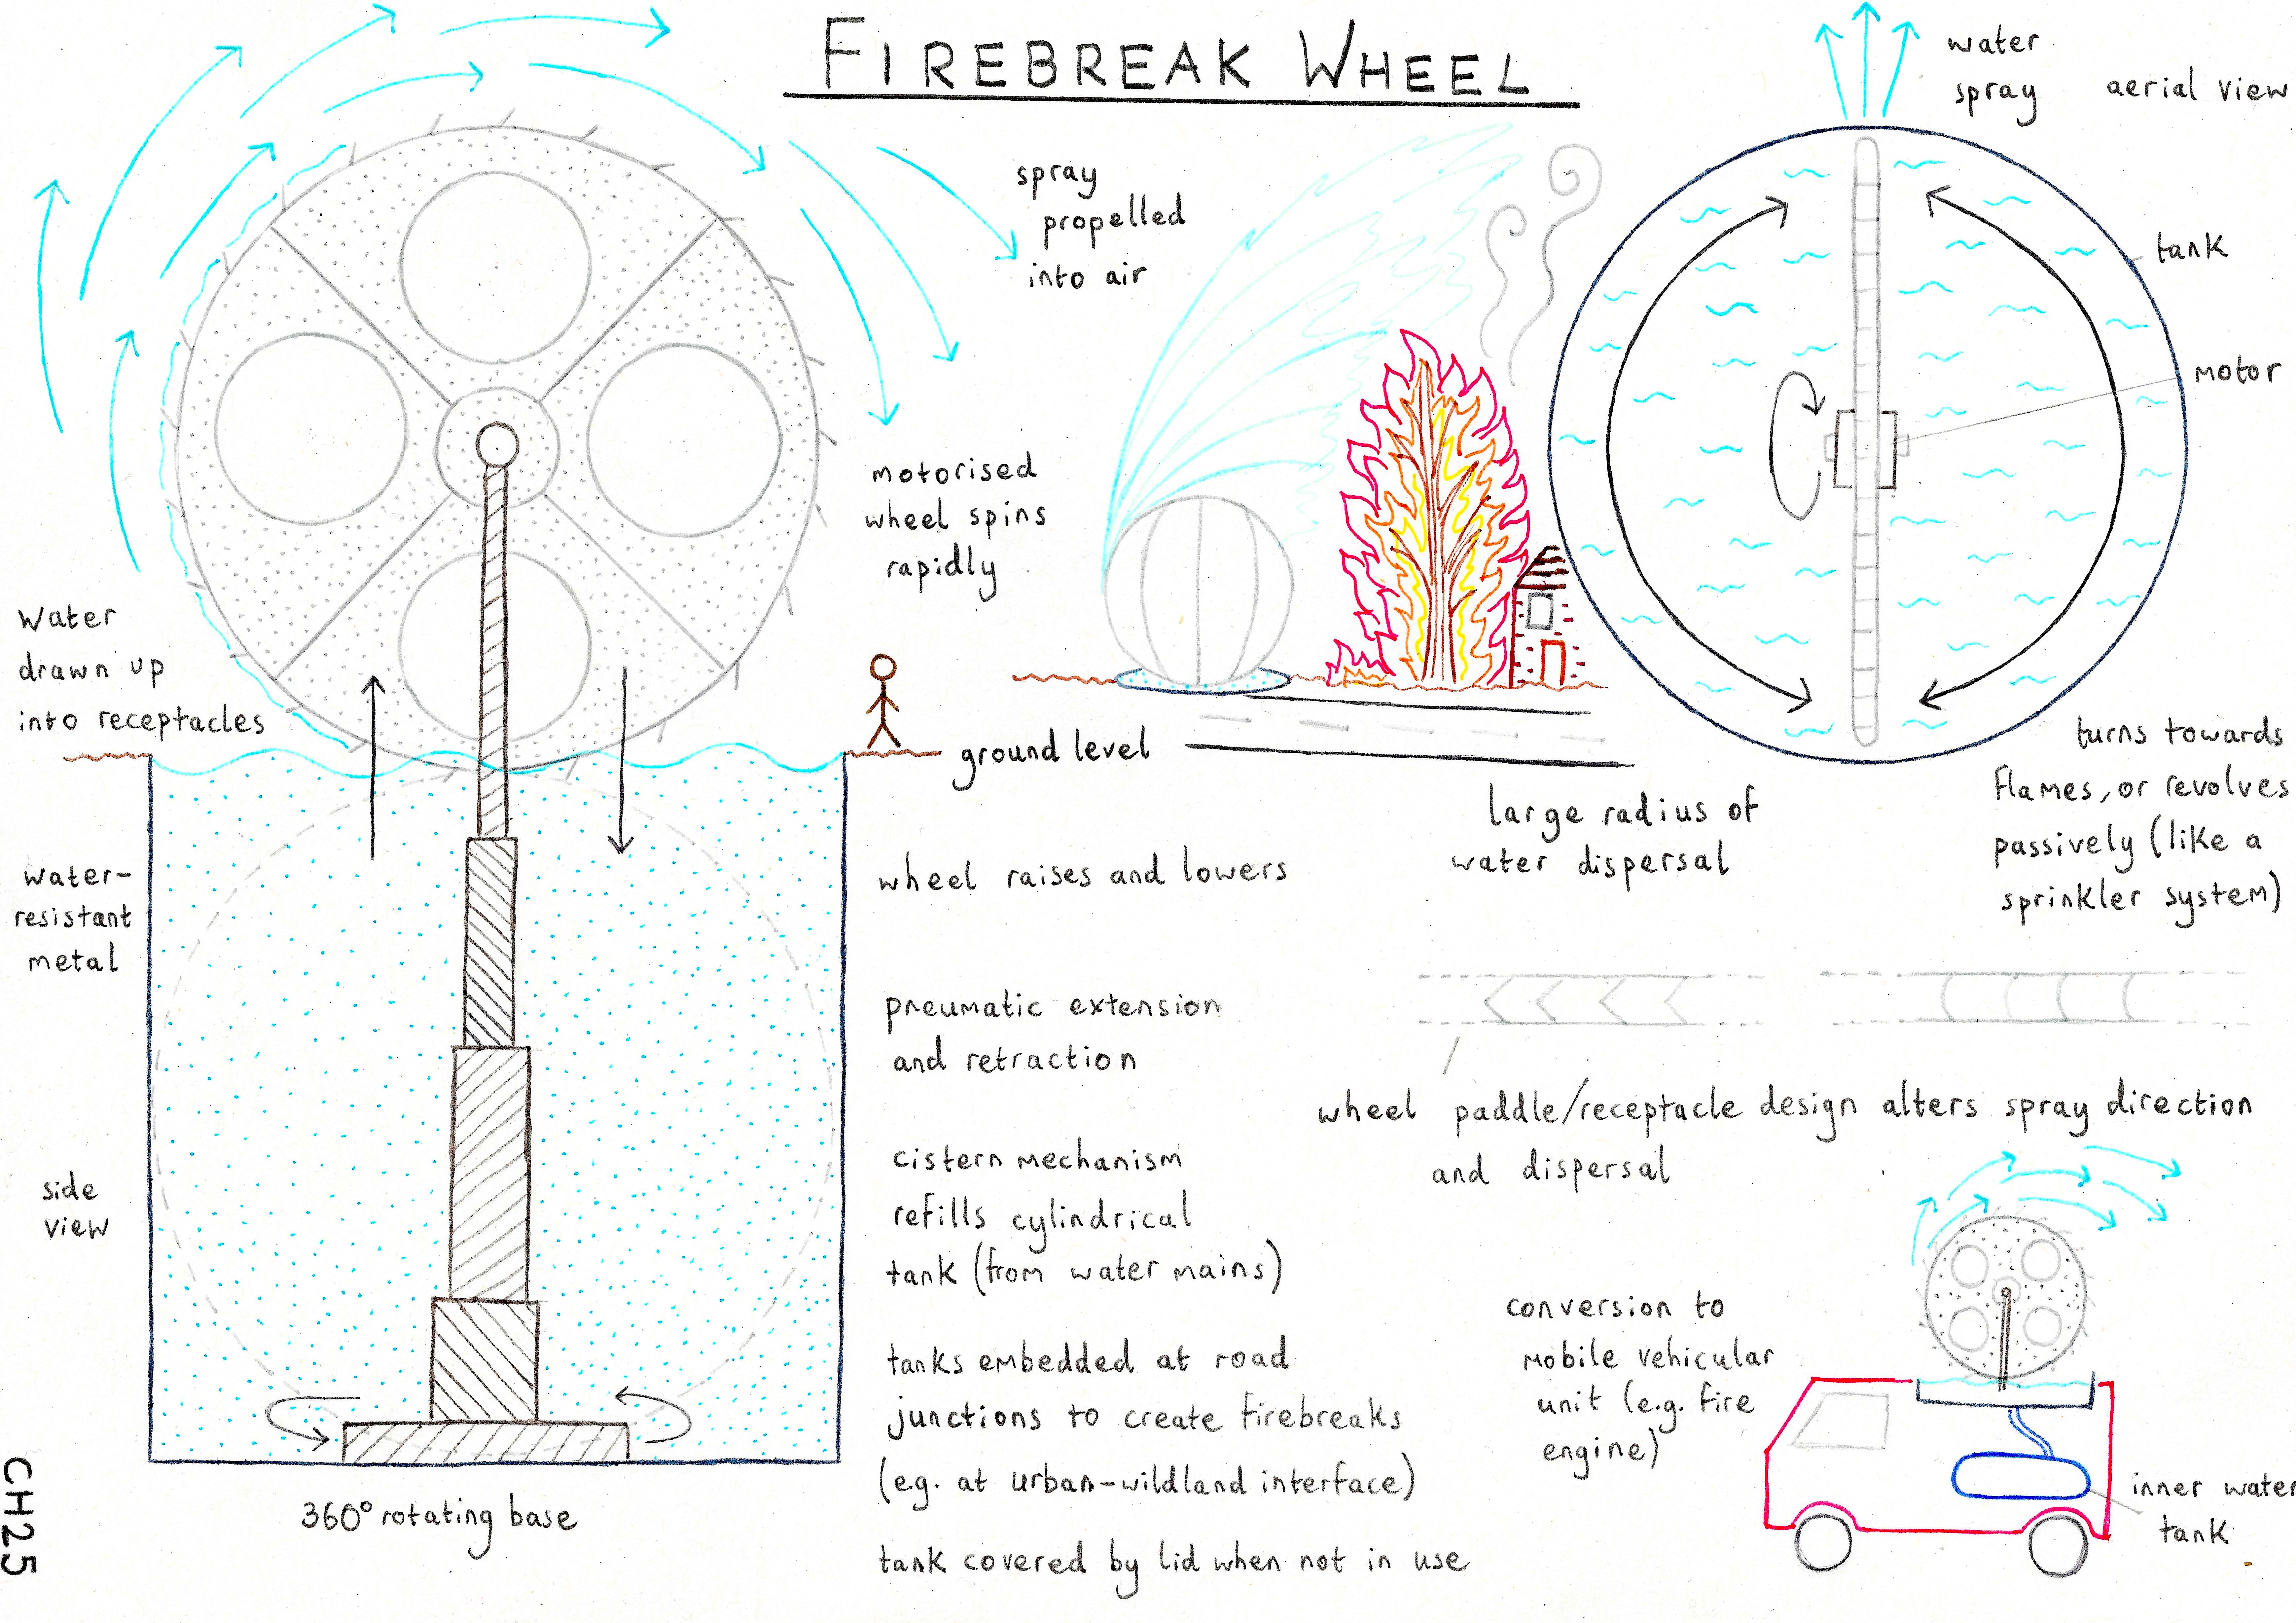 FIREBREAK WHEEL
water
spray
aerial view
spray
propelled
into air
tank
motor
motorised
wheel spins
rapidly
Water
drawn up
into receptacles
ground level
turns towards
flames, or revolves
passively (like a
sprinkler system)
large radius of
water dispersal
water-
resistant
metal
wheel raises and lowers
pneumatic extension
and retraction
wheel paddle/receptacle design alters spray direction
and dispersal
cistern mechanism
refills cylindrical
tank (from water mains)
side
view
conversion to
mobile vehicular
unit (e.g. fire
engine)
tanks embedded at road
junctions to create firebreaks
(e.g. at urban-wildland interface)
inner water
tank
360° rotating base
tank covered by lid when not in use
CH25